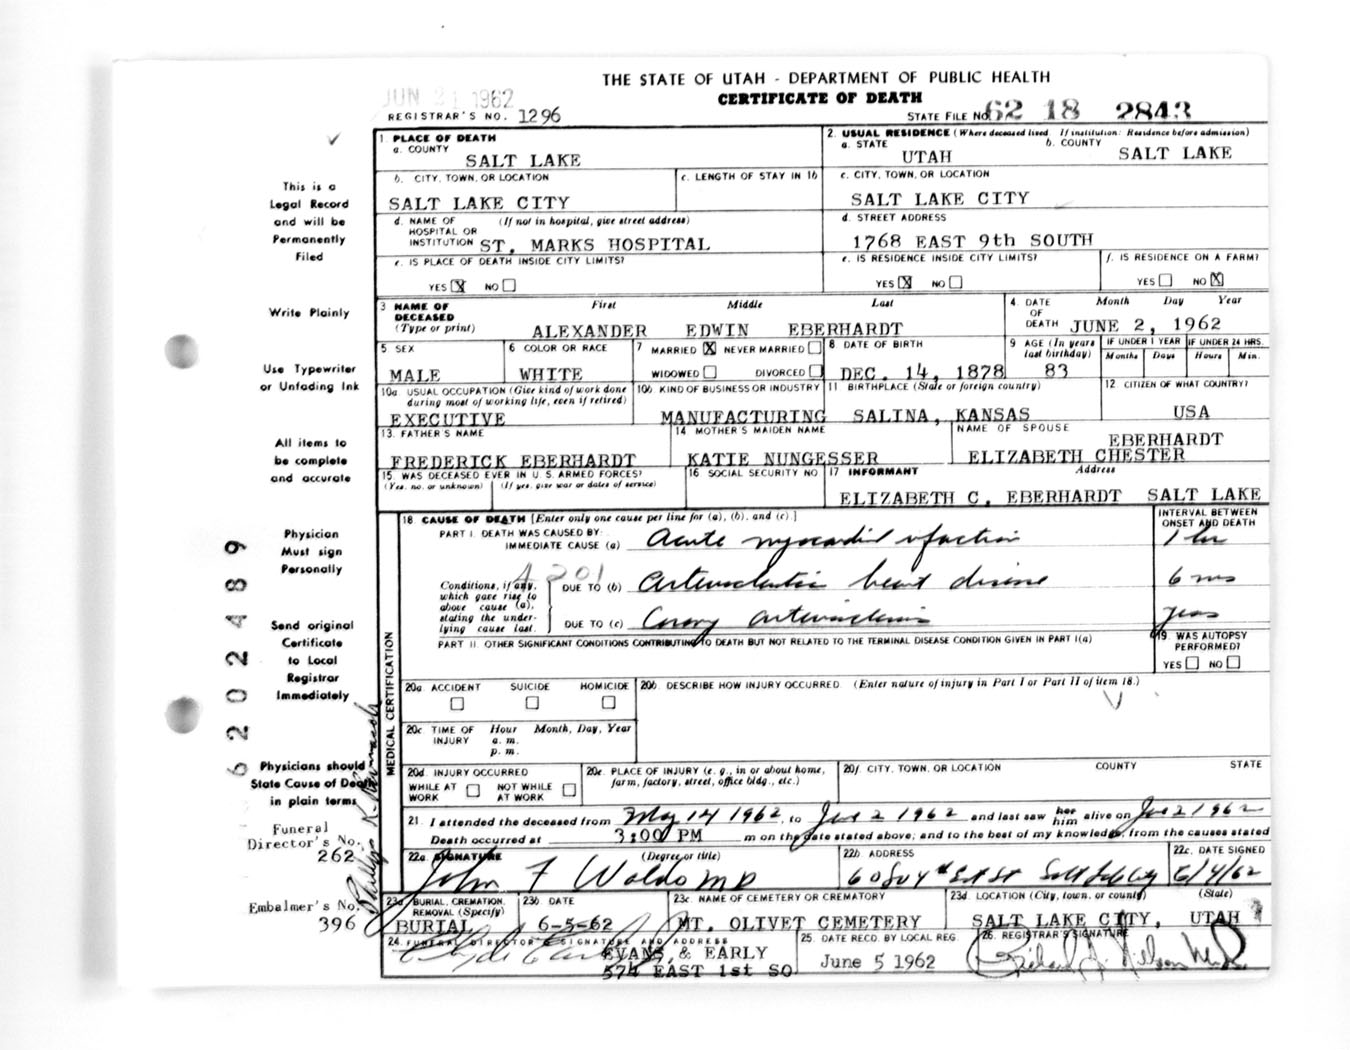 THE STATE OF UTAH - DEPARTMENT OF PUBLIC HEALTH
CERTIFICATE OF DEATH
JUN 21 1962
REGISTRAR'S NO. 1296
STATE FILE NO. 62 18 2843
1. PLACE OF DEATH
a. COUNTY
SALT LAKE
2. USUAL RESIDENCE (Where deceased lived. If institution: Residence before admission)
a. STATE UTAH b. COUNTY SALT LAKE
b. CITY, TOWN, OR LOCATION
SALT LAKE CITY
c. LENGTH OF STAY IN 1b
c. CITY, TOWN, OR LOCATION
SALT LAKE CITY
d. NAME OF HOSPITAL OR INSTITUTION (If not in hospital, give street address)
ST. MARKS HOSPITAL
d. STREET ADDRESS
1768 EAST 9th SOUTH
e. IS PLACE OF DEATH INSIDE CITY LIMITS?
YES X NO
e. IS RESIDENCE INSIDE CITY LIMITS?
YES X NO
f. IS RESIDENCE ON A FARM?
YES NO X
3 NAME OF DECEASED (Type or print)
First Middle Last
ALEXANDER EDWIN EBERHARDT
4. DATE OF DEATH Month Day Year
JUNE 2, 1962
5 SEX
MALE
6 COLOR OR RACE
WHITE
7 MARRIED X NEVER MARRIED
WIDOWED DIVORCED
8 DATE OF BIRTH
DEC. 14, 1878
9 AGE (In years last birthday)
83
IF UNDER 1 YEAR Months Days
IF UNDER 24 HRS. Hours Min.
10a. USUAL OCCUPATION (Give kind of work done during most of working life, even if retired)
EXECUTIVE
10b. KIND OF BUSINESS OR INDUSTRY
MANUFACTURING
11 BIRTHPLACE (State or foreign country)
SALINA, KANSAS
12 CITIZEN OF WHAT COUNTRY?
USA
13. FATHER'S NAME
FREDERICK EBERHARDT
14 MOTHER'S MAIDEN NAME
KATIE NUNGESSER
NAME OF SPOUSE
EBERHARDT
ELIZABETH CHESTER
15. WAS DECEASED EVER IN U.S. ARMED FORCES?
(Yes, no, or unknown) (If yes, give war or dates of service)
16 SOCIAL SECURITY NO
17 INFORMANT Address
ELIZABETH C. EBERHARDT SALT LAKE
18. CAUSE OF DEATH [Enter only one cause per line for (a), (b), and (c).]
INTERVAL BETWEEN ONSET AND DEATH
PART I. DEATH WAS CAUSED BY:
IMMEDIATE CAUSE (a) Acute myocardial infarction 1 hr
4201
Conditions, if any, which gave rise to above cause (a), stating the underlying cause last.
DUE TO (b) Arteriosclerotic heart disease 6 mos
DUE TO (c) Coronary arteriosclerosis years
PART II. OTHER SIGNIFICANT CONDITIONS CONTRIBUTING TO DEATH BUT NOT RELATED TO THE TERMINAL DISEASE CONDITION GIVEN IN PART I(a)
19. WAS AUTOPSY PERFORMED?
YES NO
MEDICAL CERTIFICATION
20a. ACCIDENT SUICIDE HOMICIDE
20b. DESCRIBE HOW INJURY OCCURRED. (Enter nature of injury in Part I or Part II of item 18.)
20c. TIME OF INJURY Hour a. m. p. m. Month, Day, Year
20d. INJURY OCCURRED
WHILE AT WORK NOT WHILE AT WORK
20e. PLACE OF INJURY (e. g., in or about home, farm, factory, street, office bldg., etc.)
20f. CITY, TOWN, OR LOCATION COUNTY STATE
21. I attended the deceased from May 14 1962, to June 2 1962 and last saw her him alive on June 2 1962
Death occurred at 3:00 PM m on the date stated above; and to the best of my knowledge, from the causes stated
22a. SIGNATURE (Degree or title)
John F Waldo MD
22b. ADDRESS
22c. DATE SIGNED
6/4/62
23a. BURIAL, CREMATION, REMOVAL (Specify)
BURIAL
23b. DATE
6-5-62
23c. NAME OF CEMETERY OR CREMATORY
MT. OLIVET CEMETERY
23d. LOCATION (City, town, or county) (State)
SALT LAKE CITY, UTAH
24. FUNERAL DIRECTOR'S SIGNATURE AND ADDRESS
EVANS & EARLY
574 EAST 1st SO
25. DATE RECD. BY LOCAL REG.
June 5 1962
26. REGISTRAR'S SIGNATURE
This is a
Legal Record
and will be
Permanently
Filed
Write Plainly
Use Typewriter
or Unfading Ink
All items to
be complete
and accurate
Physician
Must sign
Personally
Send original
Certificate
to Local
Registrar
Immediately
Physicians should
State Cause of Death
in plain terms
Funeral
Director's No.
262
Embalmer's No.
396
6202489